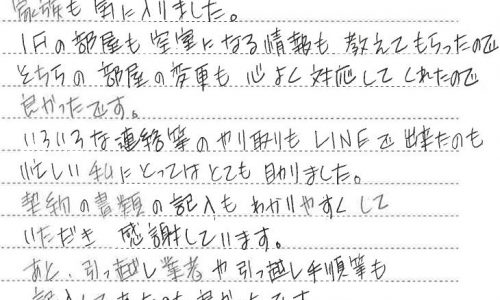 家族も気に入りました。
1Fの部屋も空室になる情報も教えてもらったので
そちらの部屋の変更も心よく対応してくれたので
良かったです。
いろいろな連絡等のやり取りもLINEで出来たのも
忙しい私にとってはとても助りました。
契約の書類の記入もわかりやすくして
いただき 感謝しています。
あと、引っ越し業者や引っ越し手順等も